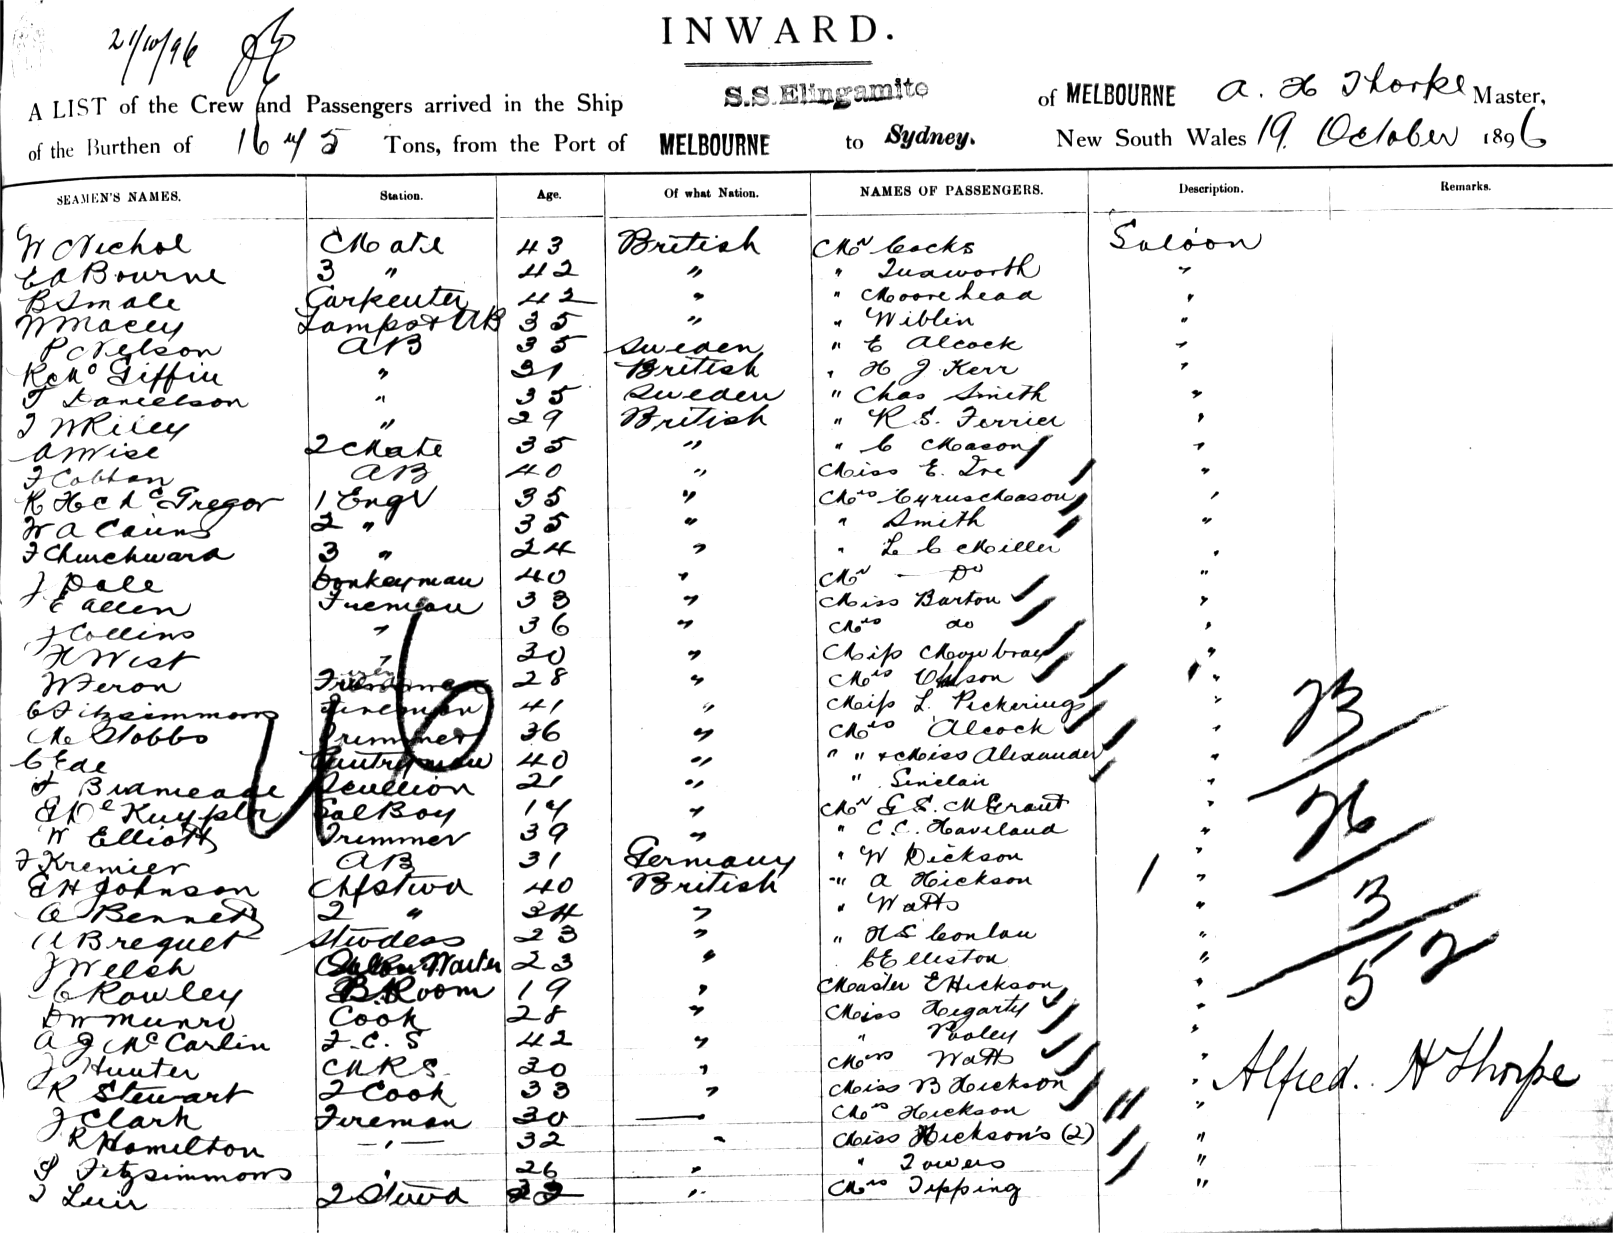 21/10/96
INWARD.
A LIST of the Crew and Passengers arrived in the Ship S.S. Elingamite of MELBOURNE A. H Thorpe Master,
of the Burthen of 1675 Tons, from the Port of MELBOURNE to Sydney. New South Wales 19. October 1896
SEAMEN'S NAMES. Station. Age. Of what Nation. NAMES OF PASSENGERS. Description. Remarks.
W Nichol Mate 43 British Mr Cocks Saloon
E A Bourne 3 " 42 " " Tudworth "
B Smale Carpenter 42 " " Moorehead "
W Macey Lamps & AB 35 " " Wiblin "
P Nelson AB 35 Sweden " E Alcock "
R Mc Giffin " 31 British " H J Kerr "
F Danielson " 35 Sweden " Chas Smith "
T W Riley " 29 British " R. S. Ferrier "
A Wise 2 Mate 35 " " C Mason "
F Cobhan AB 40 " Miss E. Ire "
R H McGregor 1 Engr 35 " Mrs Cyrus Mason "
W A Cairns 2 " 35 " " Smith "
F Churchward 3 " 24 " " L C Miller "
J Dale Donkeyman 40 " Mr — Do "
E Allen Fireman 33 " Miss Barton "
J Collins " 36 " Mrs do "
H West " 30 " Miss Mowbray "
W Feron 28 " Mrs "
C Fitzsimmons Fireman 41 " Miss L. Pickering "
M Stobbs Trimmer 36 " Mrs Alcock "
C Ede Pantryman 40 " " " & Miss Alexander "
Scullion 21 " " Sinclair "
E De Kuyper Sal Boy 17 " Mr G S. McGrant "
W Elliott Trimmer 39 " " C. C. Haveland "
F Kremier AB 31 Germany " W Dickson "
E H Johnson Chf Stwd 40 British " A Hickson "
A Bennett 2 " 34 " " Watts "
A Breguet Stwdess 23 " " H S Conlan "
J Welsh Saloon Waiter 23 " C Elliston "
C Rowley B. Room 19 " Master E Hickson "
D W Munro Cook 28 " Miss Hegarty "
A J McCarlin F. C. S 42 " " Pooley "
J Hunter C M R S 30 " Mrs Watts "
R Stewart 2 Cook 33 " Miss B Hickson "
J Clark Fireman 30 — Mrs Hickson "
R Hamilton " 32 " Miss Hickson's (2) "
S Fitzsimmons " 26 " " Towers "
T Luir 2 Stwd " Mrs Tipping "
76
73
76
3
52
Alfred. H Thorpe